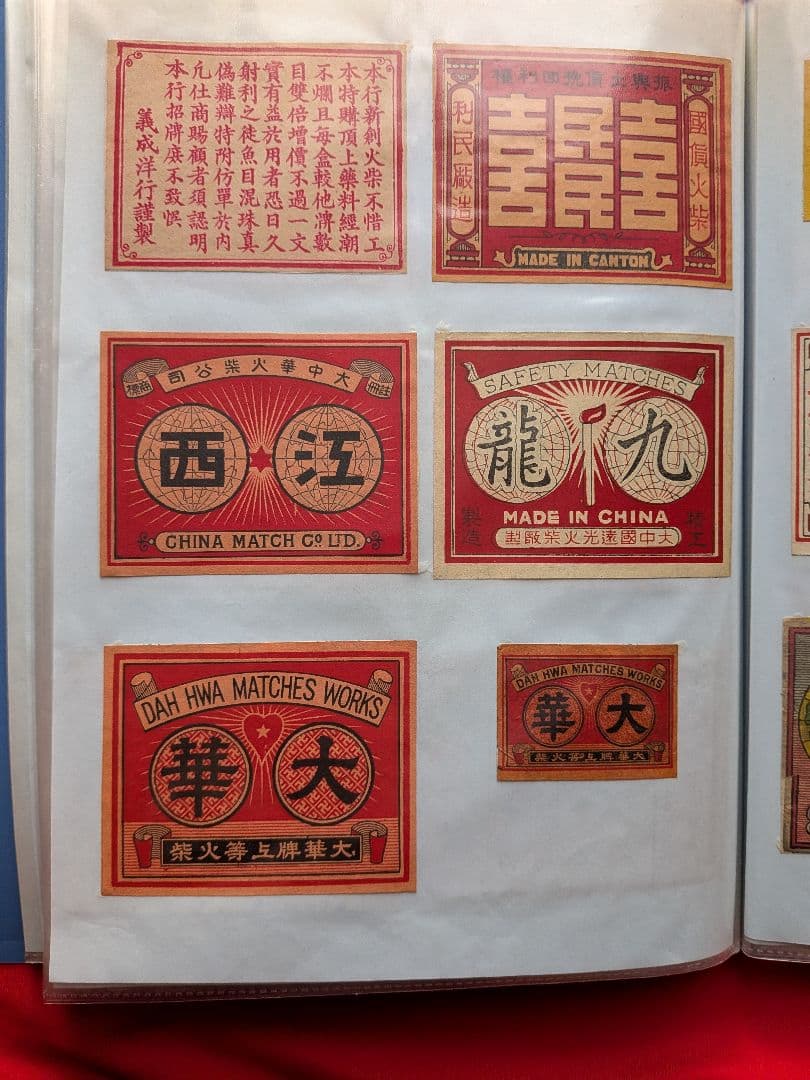 本行新創火柴不惜工
本特購頂上藥料經潮
不爛且每盒較他牌數
目雙倍增價不過一文
實有益於用者恐日久
射利之徒魚目混珠真
偽難辯特附仿單於內
凢仕商賜顧者須認明
本行招牌庶不致悞
義成洋行謹製
振興土貨挽回利權
國貨火柴
喜民民喜
利民廠造
MADE IN CANTON
註冊
大中華火柴公司
商標
江西
CHINA MATCH Co LTD.
SAFETY MATCHES
九龍
MADE IN CHINA
精工
製造
大中國遠光火柴廠製
DAH HWA MATCHES WORKS
大華
大華牌上等火柴
DAH HWA MATCHES WORKS
大華
大華牌上等火柴